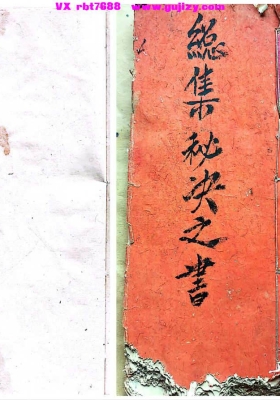 VX rbt7688  www.gujizy.com
總集秘决之書